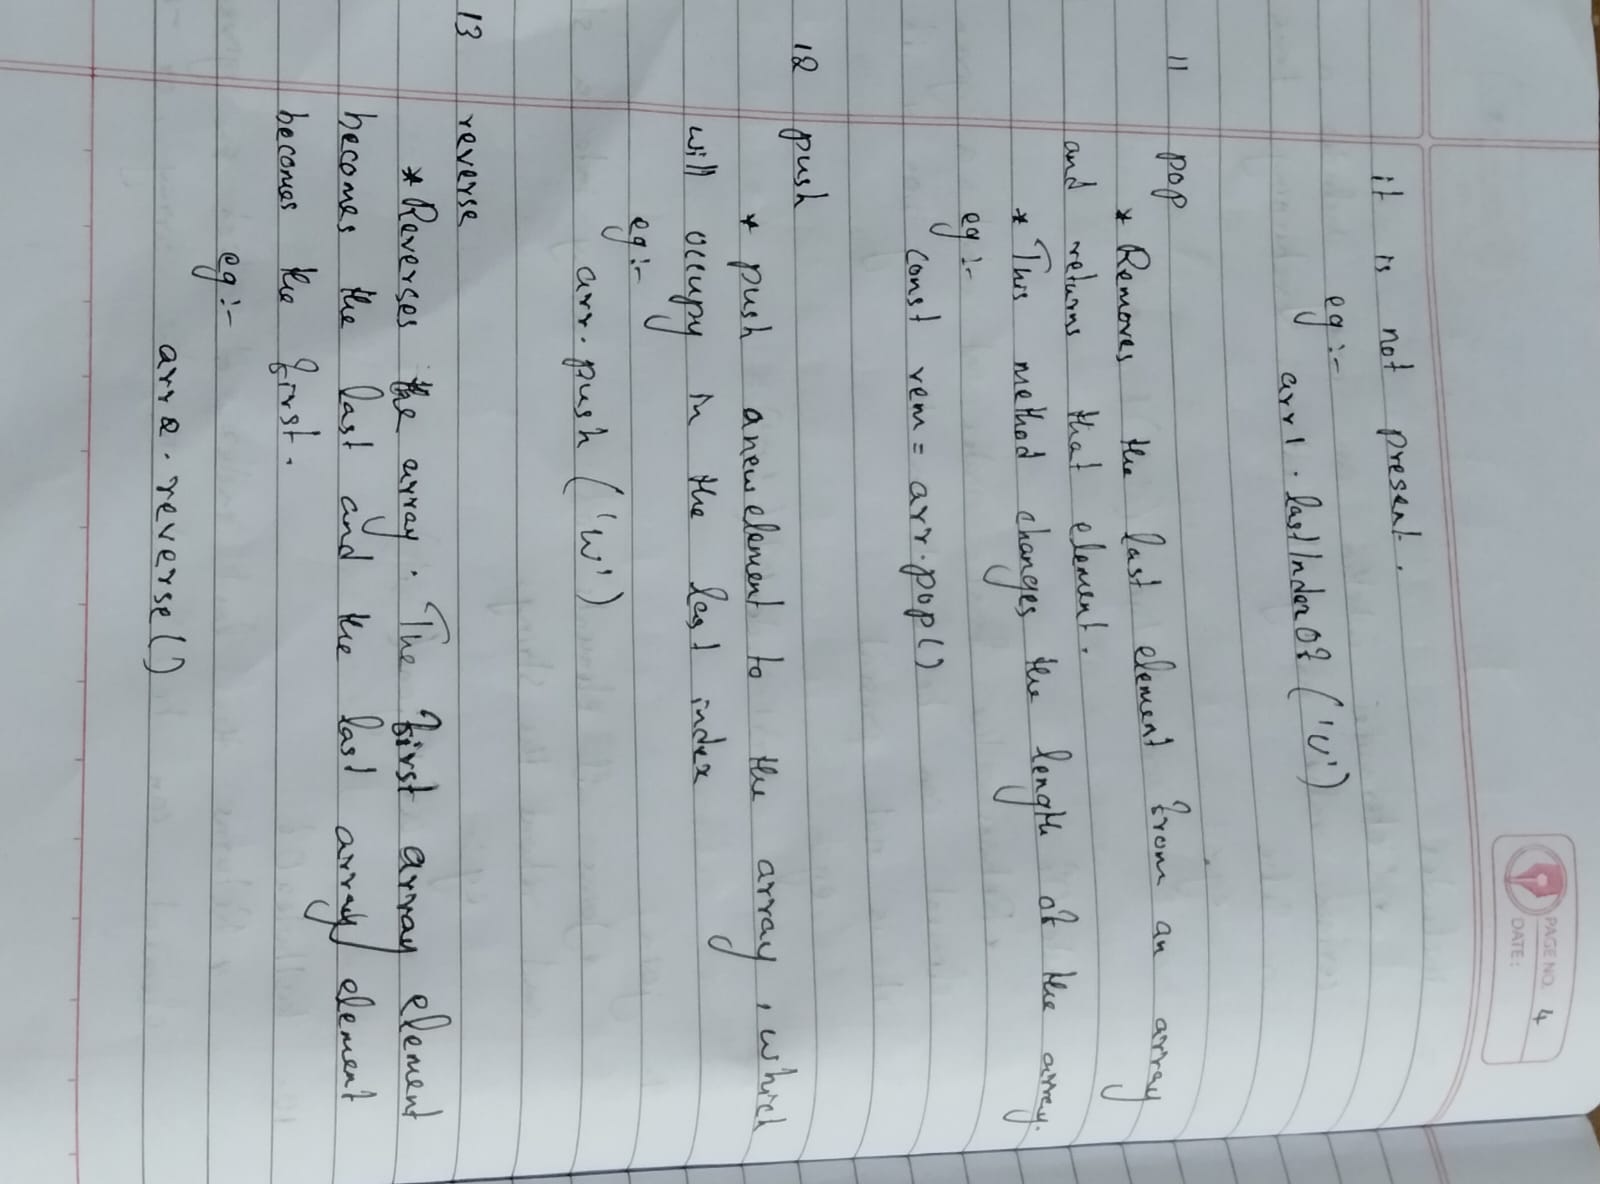 PAGE NO. 4
DATE:
it is not present.
eg :-
arr1 . lastIndexOf ('U')
11 pop
* Removes the last element from an array
and returns that element.
* This method changes the length of the array.
eg :-
const rem = arr.pop()
12 push
* push a new element to the array, which
will occupy in the last index
eg :-
arr.push ('W')
13 reverse
* Reverses the array. The first array element
becomes the last and the last array element
becomes the first.
eg :-
arr2.reverse()